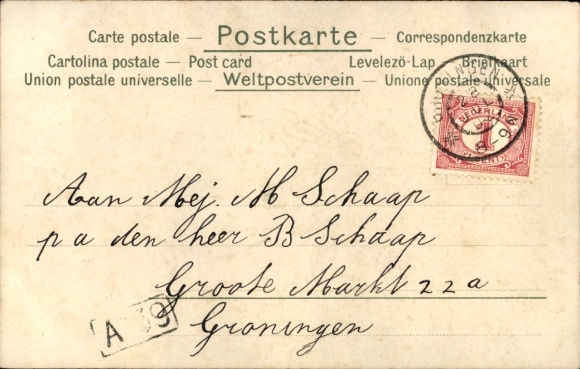 Carte postale — Postkarte — Correspondenzkarte
Cartolina postale — Post card Levelező-Lap — Briefkaart
Union postale universelle — Weltpostverein — Unione postale universale
NEDERLAND
1
CENT
Aan Mej. M Schaap
p a den heer B Schaap
Groote Markt 22a
Groningen